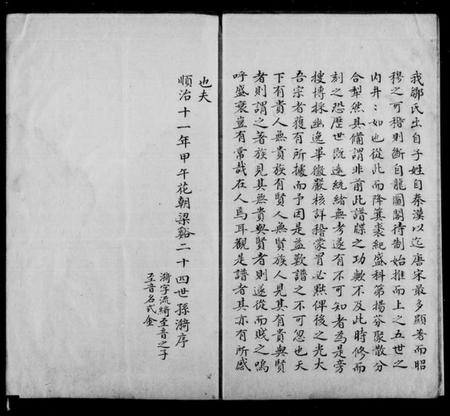 我鄒氏出自子姓自秦漢以迄唐宋最多顯著而昭
穆之可稽則斷自龍圖閣待制始推而上之五世之
内井井如也從此而降簪裘紀盛科第揚芬聚散分
合犁然具備謂非前此譜牒之功歟不及此時修而
刻之恐歷世既遠統緒無考遂有不可知者為是旁
搜博採幽逸畢徵嚴核詳稽蒙冒必黜俾後之光大
吾宗者獲有所據而予因是益歎譜之不可忽也天
下有貴人無貴族有賢人無賢族人見其有貴與賢
者則謂之著族見其無貴與賢者則遂從而賤之嗚
呼盛衰豈有常哉在人焉耳觀是譜者其亦有所感
也夫
順治十一年甲午花朝梁谿二十四世孫漪序
漪字流綺至音之子
至音名式金